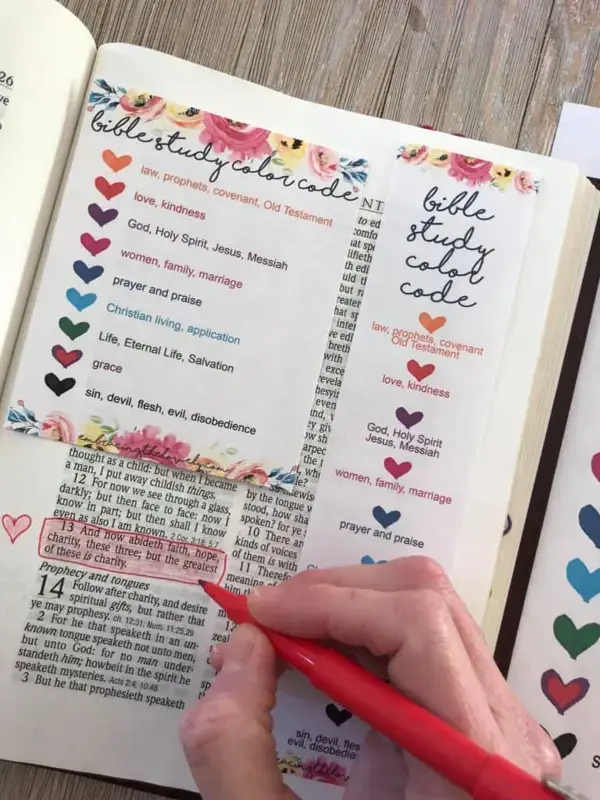 26
ve
bible study color code
law, prophets, covenant, Old Testament
love, kindness
God, Holy Spirit, Jesus, Messiah
women, family, marriage
prayer and praise
Christian living, application
Life, Eternal Life, Salvation
grace
sin, devil, flesh, evil, disobedience
embracingthelovely.com
thought as a child: but when I became
a man, I put away childish things.
12 For now we see through a glass,
darkly; but then face to face: now I
know in part; but then shall I know
even as also I am known. 2 Cor. 3:18; 5:7
13 And now abideth faith, hope,
charity, these three; but the greatest
of these is charity.
Prophecy and tongues
14 Follow after charity, and desire
spiritual gifts, but rather that
ye may prophesy. ch. 12:31; Num. 11:25,29
2 For he that speaketh in an un-
known tongue speaketh not unto men,
but unto God: for no man under-
standeth him; howbeit in the spirit he
speaketh mysteries. Acts 2:4; 10:46
3 But he that prophesieth speaketh
NT
by the tongue
stood, how sha
spoken? for ye
10 There are
kinds of voices
of them is with
11 Therefo
meaning of
him th
12
zeal
bible
study
color
code
law, prophets, covenant
Old Testament
love, kindness
God, Holy Spirit
Jesus, Messiah
women, family, marriage
prayer and praise
sin, devil, fles
evil, disobedie
S